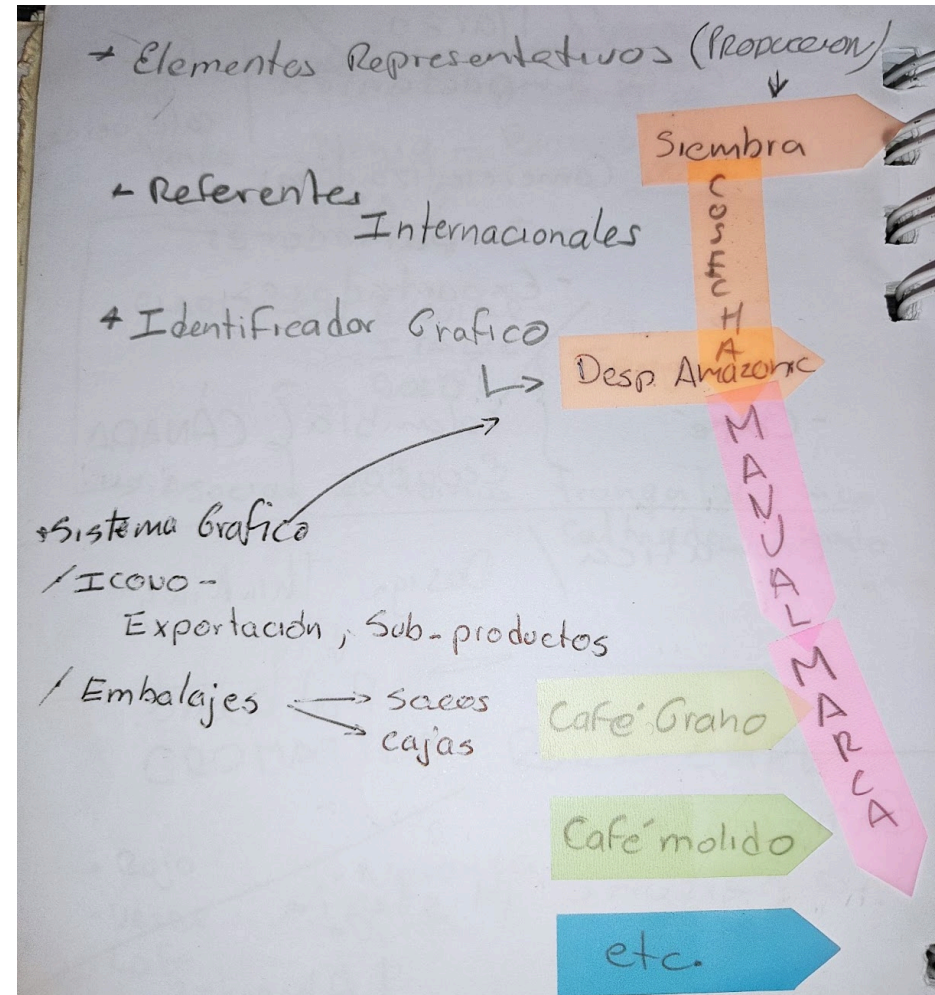 + Elementos Representativos (PRODUCCION)
Siembra
COSECHA
- Referentes
Internacionales
+ Identificador Grafico
Desp. Amazonic
MANUAL
MARCA
*Sistema Grafico
/ICONO-
Exportación, Sub-productos
/ Embalajes → sacos
cajas
Café Grano
Café molido
etc.